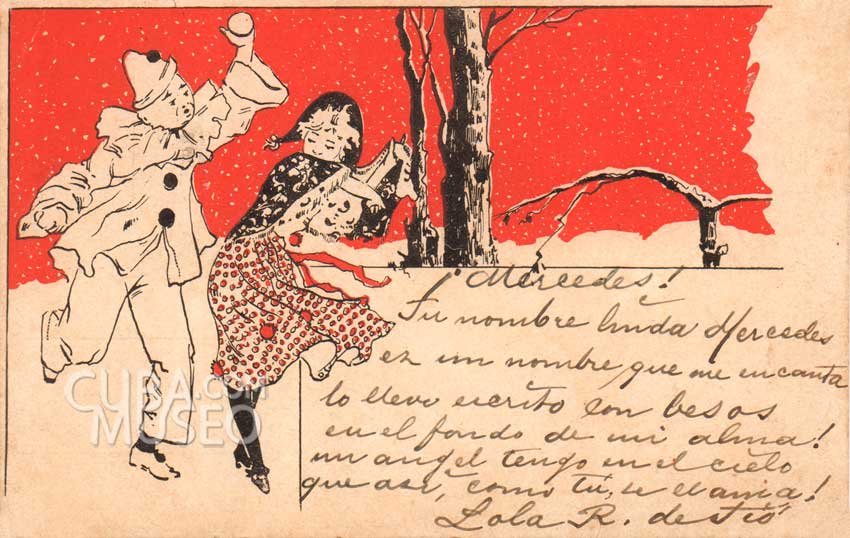 ¡Mercedes!
Tu nombre linda Mercedes
ez un nombre que me encanta
lo llevo escrito con besos
en el fondo de mi alma!
un angel tengo en el cielo
que así, como tú, se llama!
Lola R. de Tió
CUBA.com
MUSEO